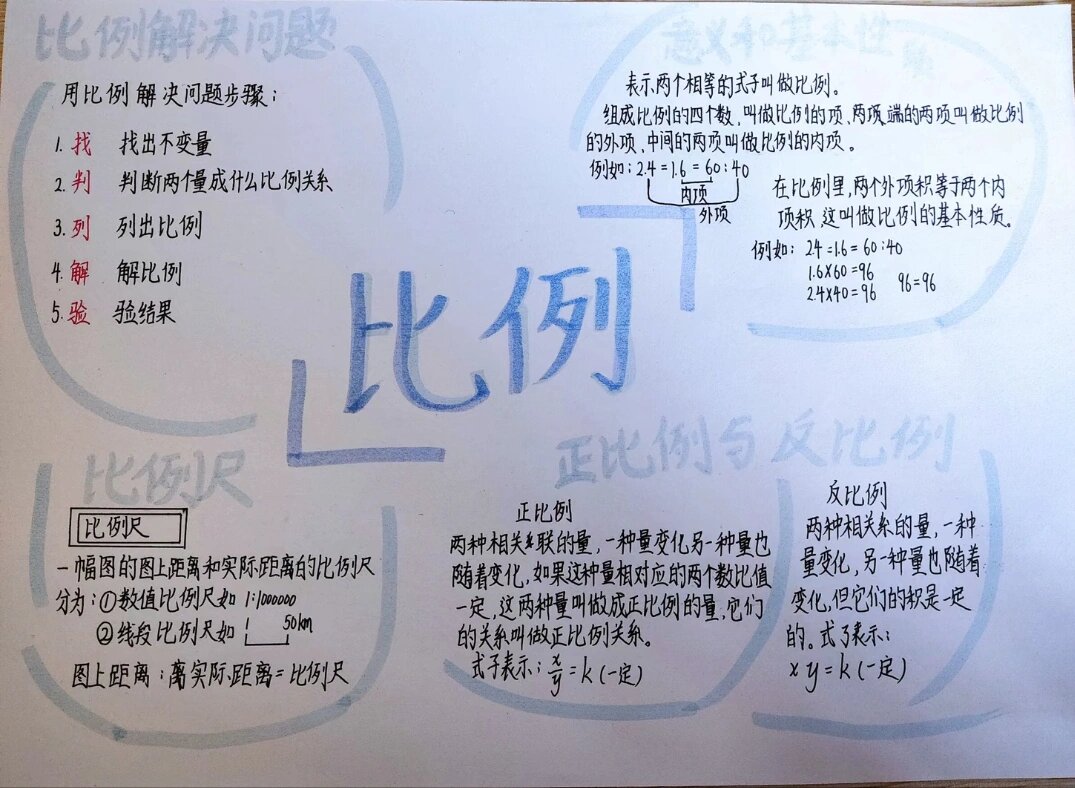 比例解决问题
用比例解决问题步骤：
1. 找 找出不变量
2. 判 判断两个量成什么比例关系
3. 列 列出比例
4. 解 解比例
5. 验 验结果
意义和基本性
表示两个相等的式子叫做比例。
组成比例的四个数，叫做比例的项、两项端的两项叫做比例
的外项，中间的两项叫做比例的内项。
例如：2.4=1.6=60:40
内项
外项
在比例里，两个外项积等于两个内
项积 这叫做比例的基本性质。
例如： 24=1.6=60:40
1.6×60=96
2.4×40=96 96=96
比例
比例尺
比例尺
一幅图的图上距离和实际距离的比例尺
分为：①数值比例尺如 1:1000000
②线段比例尺如 50km
图上距离：离实际距离=比例尺
正比例与反比例
正比例
两种相关联的量，一种量变化另一种量也
随着变化，如果这种量相对应的两个数比值
一定，这两种量叫做成正比例的量，它们
的关系叫做正比例关系。
式子表示：x/y=k(一定)
反比例
两种相关系的量，一种
量变化，另一种量也随着
变化，但它们的积是一定
的。式了表示：
xy=k(一定)